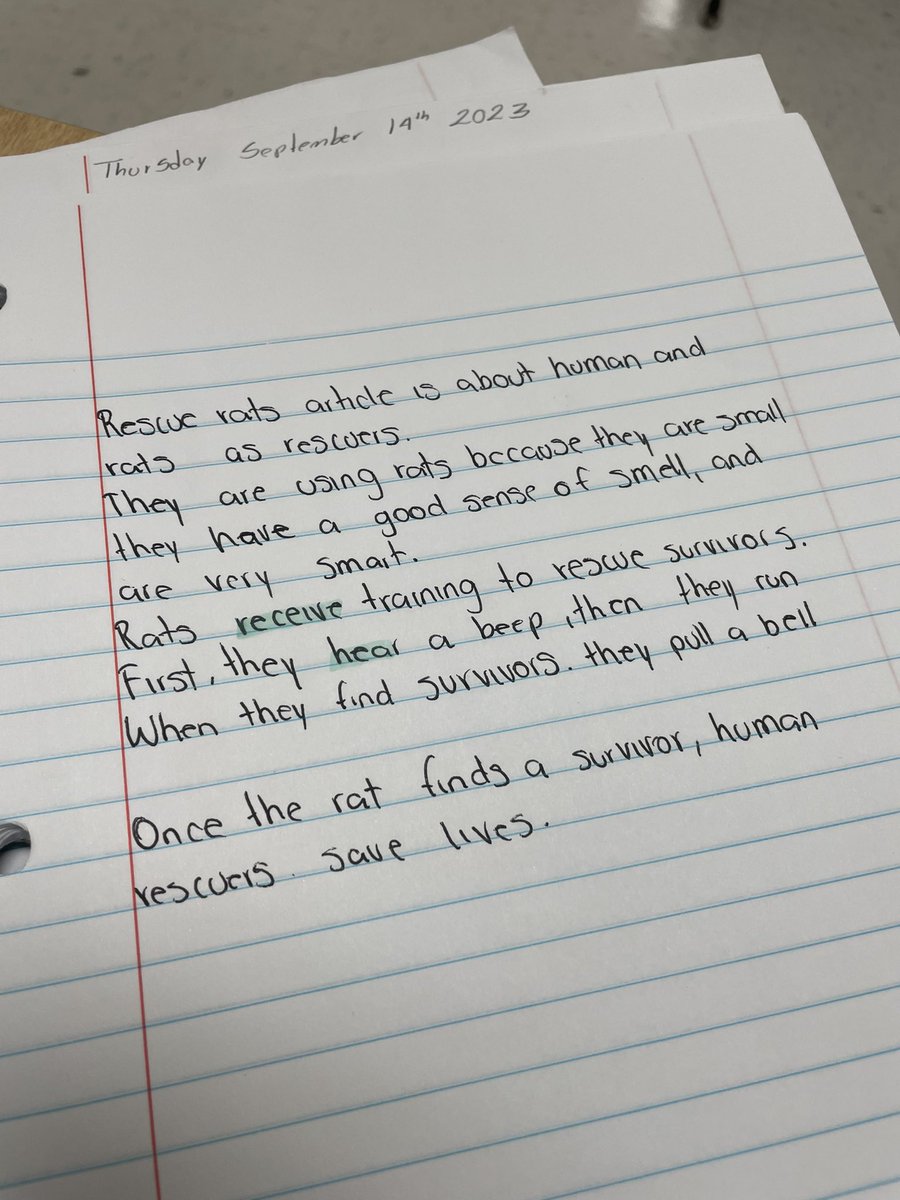 Thursday September 14th 2023
Rescue rats article is about human and
rats as rescuers.
They are using rats because they are small
they have a good sense of smell, and
are very smart.
Rats receive training to rescue survivors.
First, they hear a beep, then they run
When they find survivors. they pull a bell
Once the rat finds a survivor, human
rescuers. save lives.